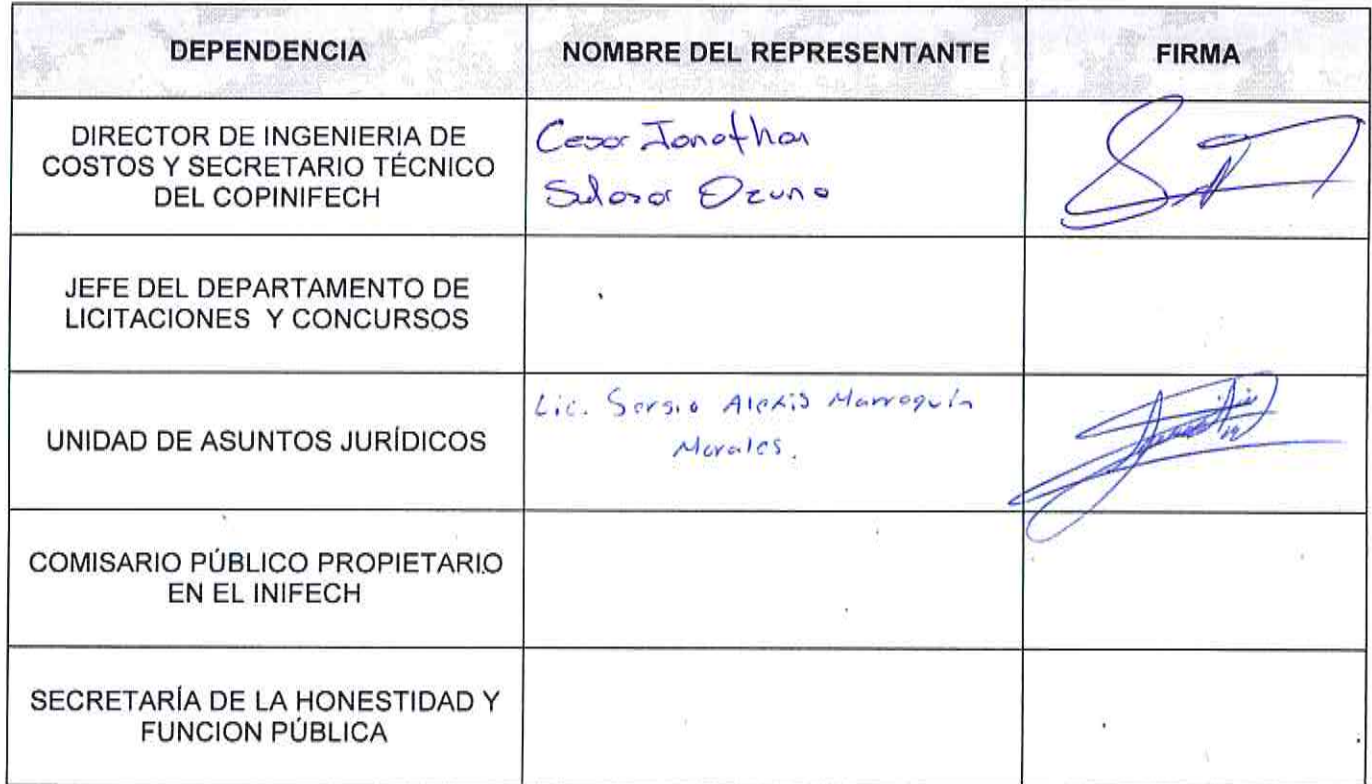 DEPENDENCIA
NOMBRE DEL REPRESENTANTE
FIRMA
DIRECTOR DE INGENIERIA DE
COSTOS Y SECRETARIO TÉCNICO
DEL COPINIFECH
Cesar Jonathan
Salazar Ozuna
JEFE DEL DEPARTAMENTO DE
LICITACIONES Y CONCURSOS
UNIDAD DE ASUNTOS JURÍDICOS
Lic. Sergio Alexis Marroquín
Morales.
COMISARIO PÚBLICO PROPIETARIO
EN EL INIFECH
SECRETARÍA DE LA HONESTIDAD Y
FUNCION PÚBLICA